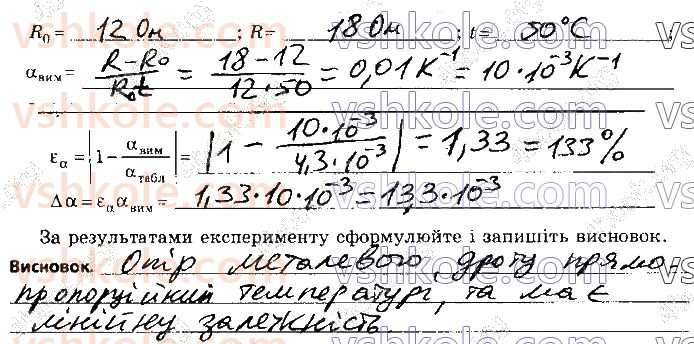 R₀ = 12 Ом ; R = 18 Ом ; t = 50°C ;
α вим = (R − R₀)/(R₀t) = (18 − 12)/(12·50) = 0,01 K⁻¹ = 10·10⁻³ K⁻¹
ε α = |1 − α вим/α табл| = |1 − 10·10⁻³/4,3·10⁻³| = 1,33 = 133%
Δα = ε α α вим = 1,33·10·10⁻³ = 13,3·10⁻³
За результатами експерименту сформулюйте і запишіть висновок.
Висновок. Опір металевого дроту прямо
пропорційний температурі, та має
лінійну залежність.
vshkole.com